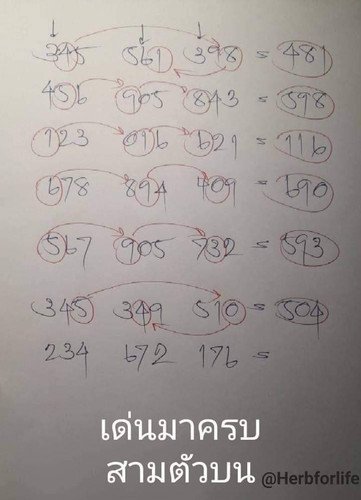 345 561 398 = 481
456 905 843 = 598
123 016 621 = 116
678 894 409 = 690
567 905 732 = 593
345 349 510 = 504
234 672 176 =
เด่นมาครบ
สามตัวบน @Herbforlife